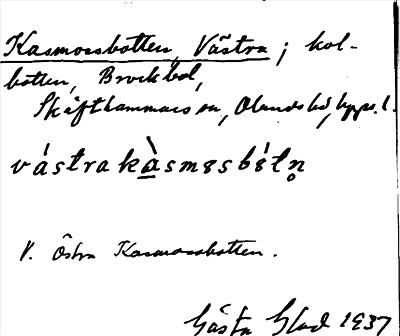 Kasmossbotten, Västra; kol-
botten, Brockbol,
Skäfthammars sn, Olands hd, Upps. l.
vástrakàsmɘsbétn̥
V. Östra Kasmossbotten.
Gösta Glad 1937